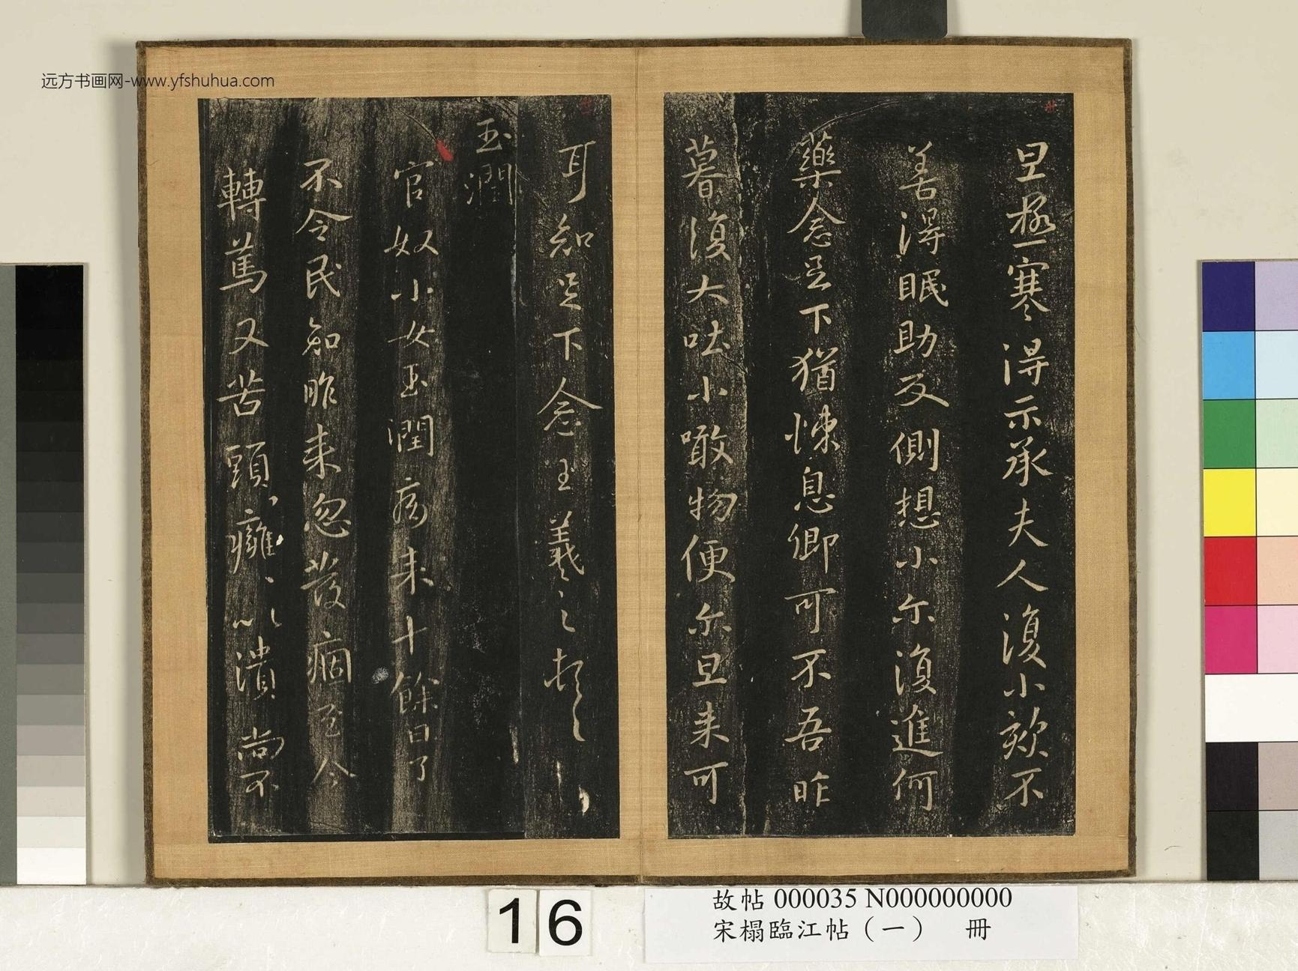 远方书画网-www.yfshuhua.com
旦極寒得示承夫人復小欬不
善得眠助反側想小尓復進何
藥念足下猶悚息卿可不吾昨
暮復大吐小噉物便尓旦来可
耳知足下念王羲之頓首
玉潤
官奴小女玉潤病来十餘日了
不令民知昨来忽發痼至今
轉篤又苦頭癰癰以潰尚不
16
故帖 000035 N000000000
宋榻臨江帖（一） 冊